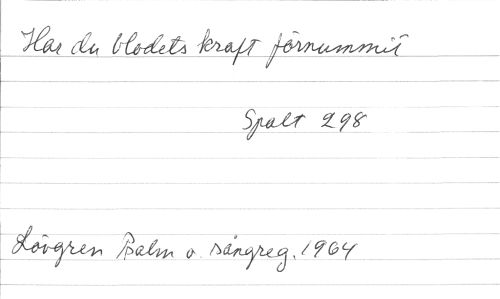 Har du blodets kraft förnummit
Spalt 298
Lövgren Psalm o. sångreg. 1964